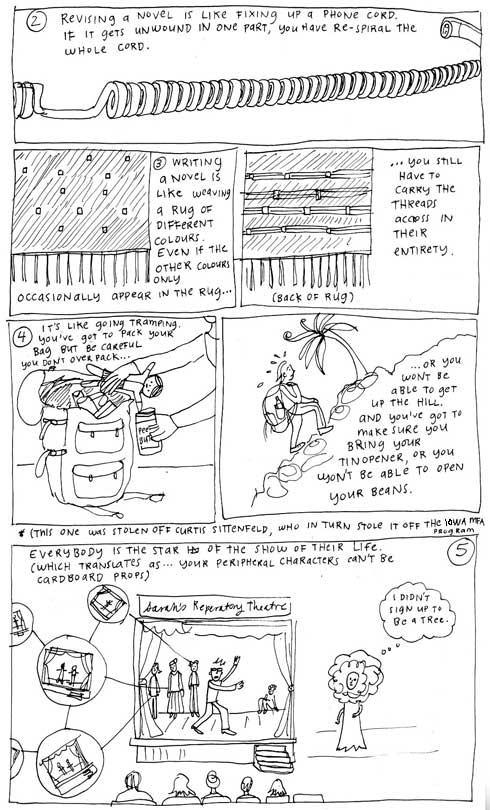 ② REVISING A NOVEL IS LIKE FIXING UP A PHONE CORD.
IF IT GETS UNWOUND IN ONE PART, YOU HAVE RE-SPIRAL THE
WHOLE CORD.
③ WRITING
A NOVEL IS
LIKE WEAVING
A RUG OF
DIFFERENT
COLOURS.
EVEN IF THE
OTHER COLOURS
ONLY
OCCASIONALLY APPEAR IN THE RUG...
...YOU STILL
HAVE TO
CARRY THE
THREADS
ACCOSS IN
THEIR
ENTIRETY.
(BACK OF RUG)
④ IT'S LIKE GOING TRAMPING.
YOU'VE GOT TO PACK YOUR
BAG BUT BE CAREFUL
YOU DON'T OVERPACK...
PEE
BUT
...OR YOU
WON'T BE
ABLE TO GET
UP THE HILL.
AND YOU'VE GOT TO
MAKE SURE YOU
BRING YOUR
TINOPENER, OR YOU
WON'T BE ABLE TO OPEN
YOUR BEANS.
* (THIS ONE WAS STOLEN OFF CURTIS SITTENFELD, WHO IN TURN STOLE IT OFF THE IOWA MFA
PROGRAM
⑤
EVERYBODY IS THE STAR OF THE SHOW OF THEIR LIFE.
(WHICH TRANSLATES AS... YOUR PERIPHERAL CHARACTERS CAN'T BE
CARDBOARD PROPS)
Sarah's Reperatory Theatre
I DIDN'T
SIGN UP TO
BE A TREE.